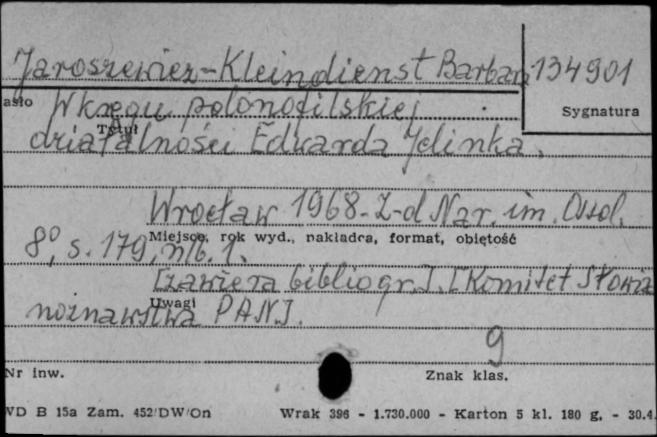 Jaroszewicz-Kleindienst Barbara 134901
asło W kręgu polonofilskiej Sygnatura
Tytuł
działalności Edwarda Jelinka.
Wrocław 1968. Z-d Nar. im. Ossol.
Miejsce, rok wyd., nakładca, format, objętość
8°, s. 179, nlb. 1.
[zawiera bibliogr.]. [Komitet Słowia
Uwagi
noznawstwa PAN].
9
Nr inw. Znak klas.
WD B 15a Zam. 452/DW/On Wrak 396 - 1.730.000 - Karton 5 kl. 180 g. - 30.4.